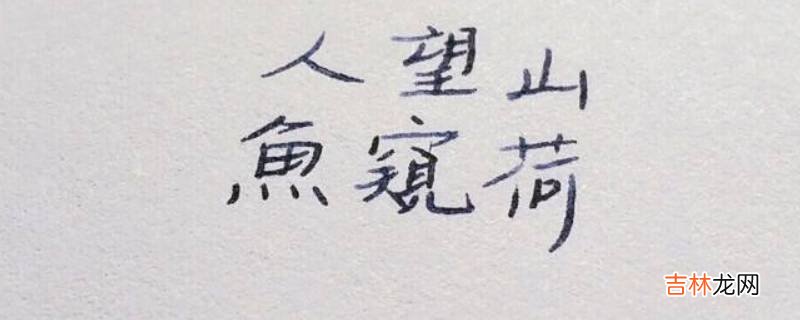 人望山
魚窺荷
吉林龙网